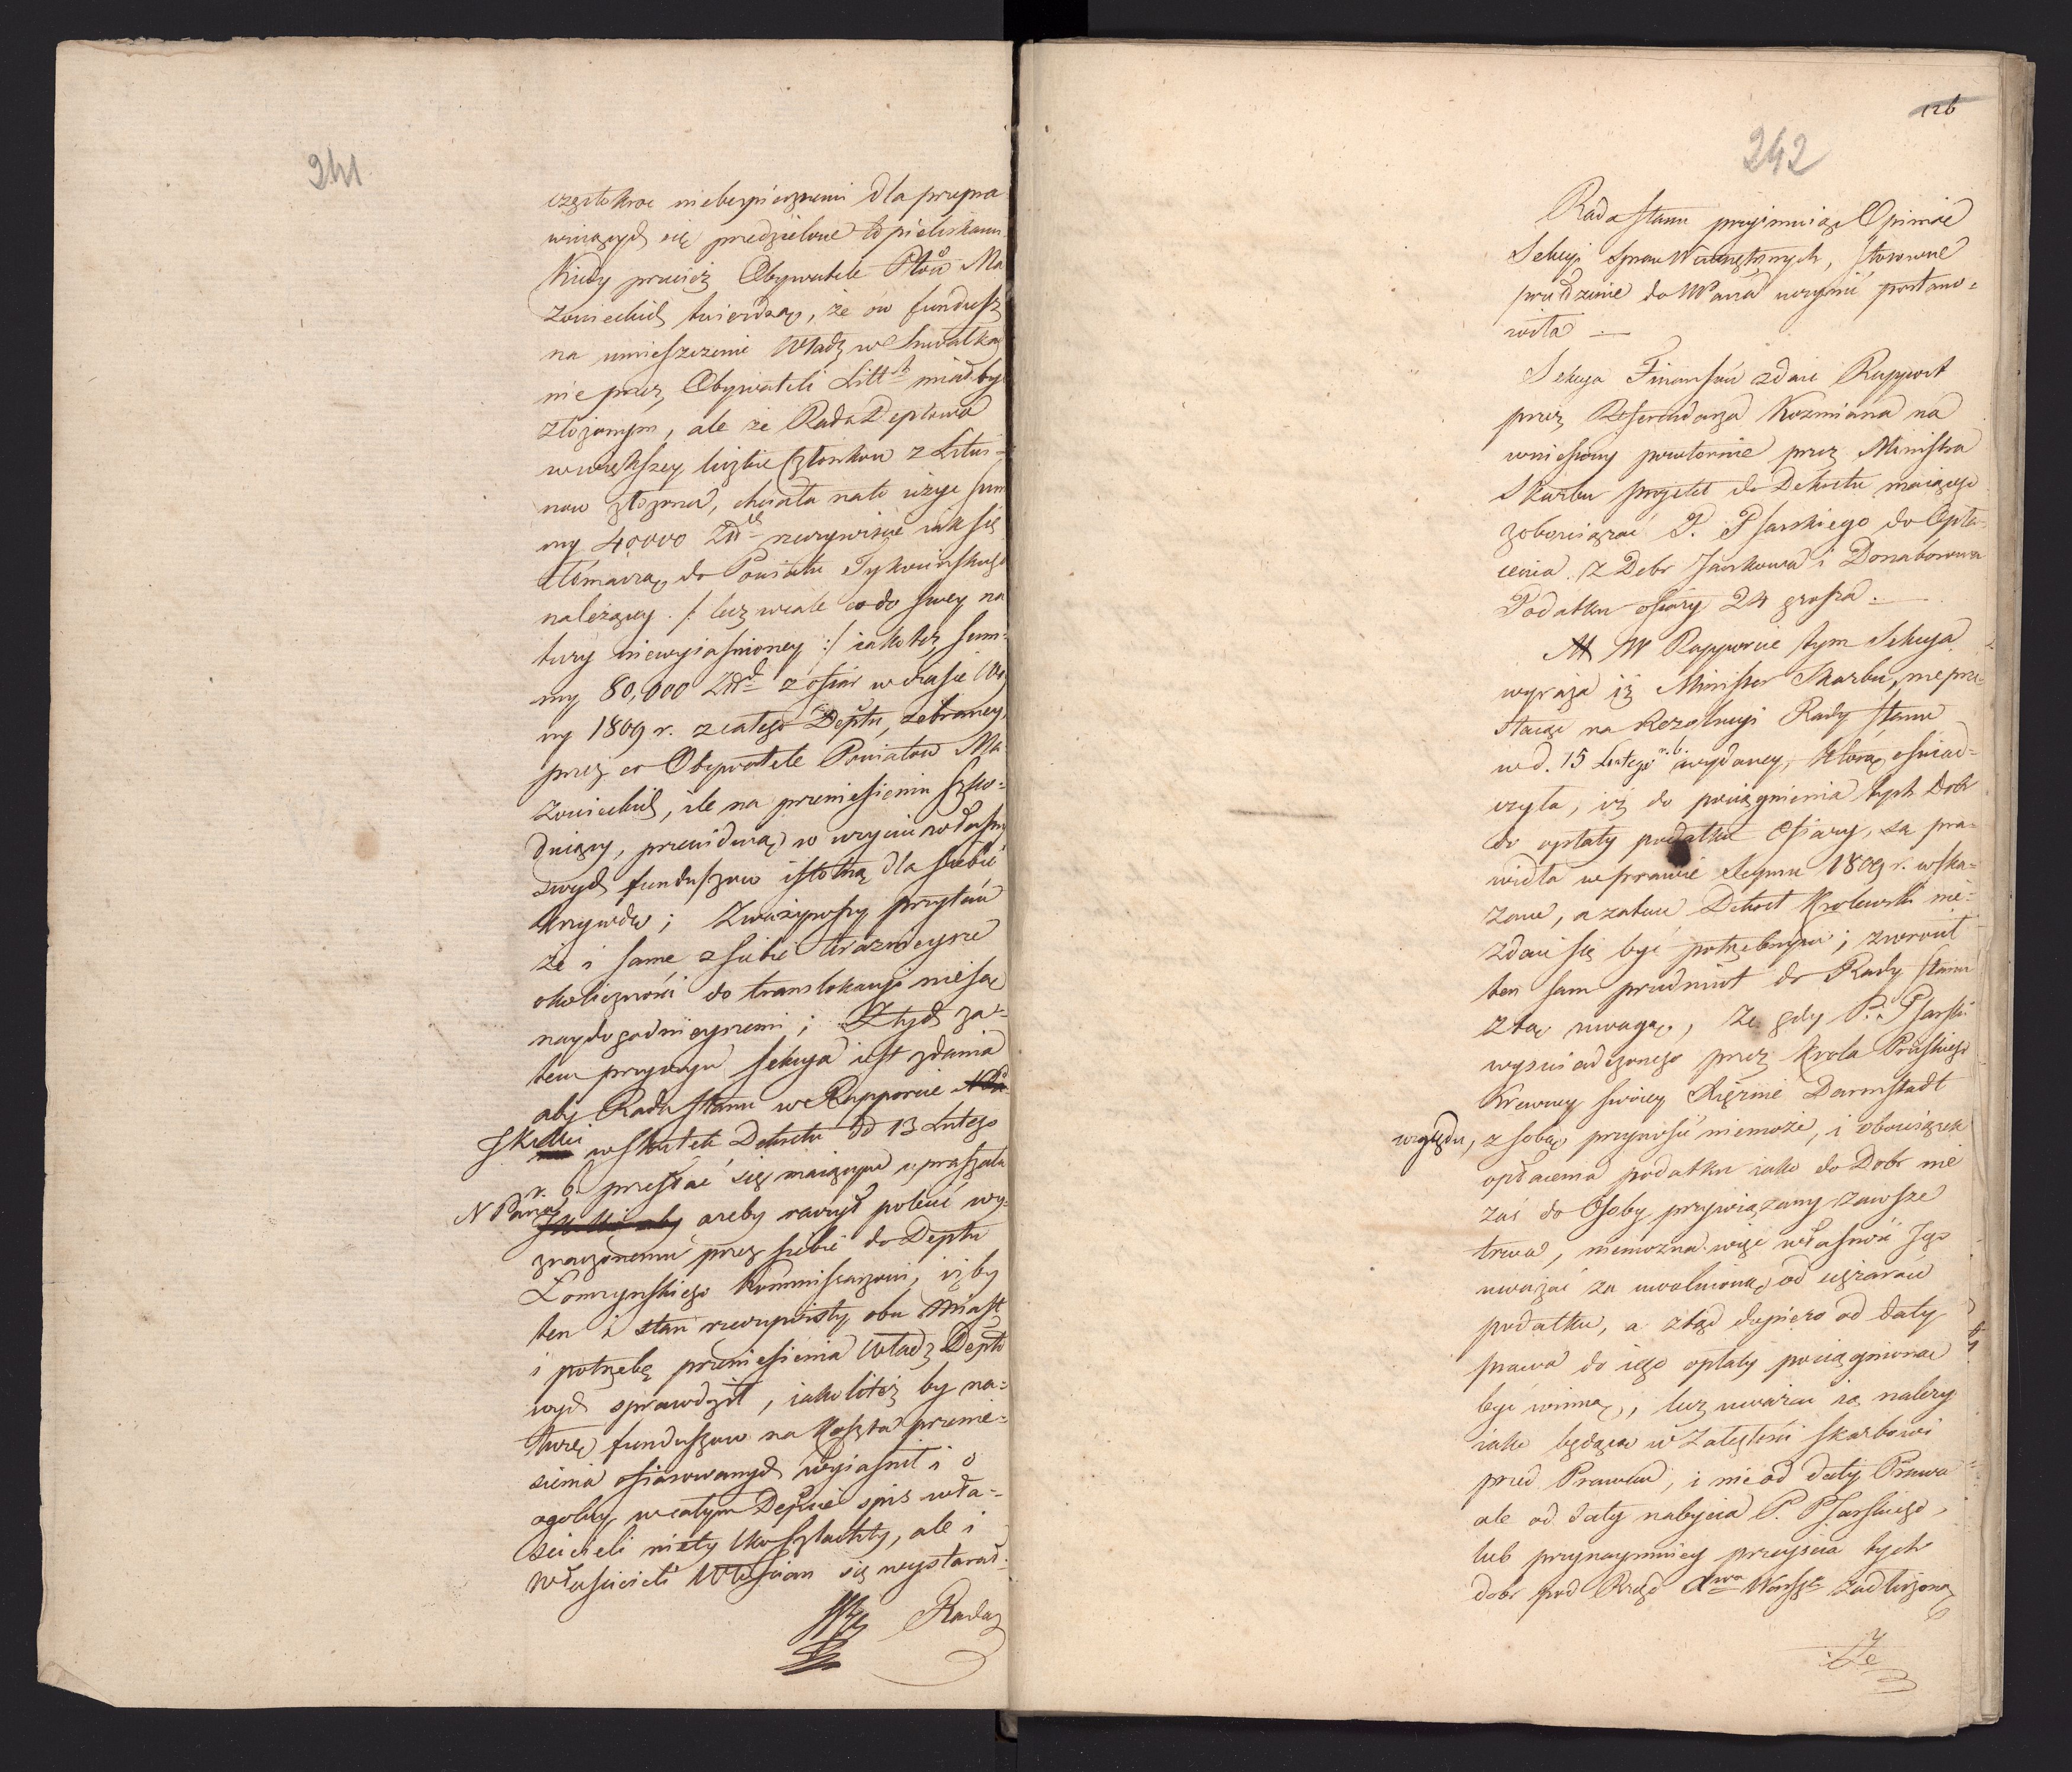 241
częstokroć niebezpiecznemi dla przepra
wiaiących się przedzielone topieliskami
Kiedy przecież Obywatele Ptów Ma
zowieckich twierdzą, że ów fundusz
na umieszczenie Władz w Suwałkach
nie przez Obywateli Litt. miał być
złożonym, ale że Rada Deptowa
w większey liczbie Członków z Litwi-
nów złożona, chciała na to użyć sum
my 40,000 Złł. rzeczywiście iak się
tłómaczą do Powiatu Tykocińskiego
należącey /: lecz wcale co do swey na
tury niewyiaśnioney :/ iako też sum-
my 80,000 Złł. z ofiar w czasie Woy
ny 1809 r. z całego Deptu, zebraney,
przez co Obywatele Powiatów Ma
zowieckich, ile na przeniesieniu szko-
duiący, przewiduią w użyciu własnych
swych funduszów istotną dla siebie
krzywdę; Zważywszy przytém
że i same z siebie teraźnieysze
okoliczności do translokacyi nie są
naydogodnieyszemi; Z tych za-
tem przyczyn Sekcya iest zdania
aby Rada Stanu w Rapporcie
JKMci w skutek Dekretu dd 13 Lutego
r. b. przesłać się maiącym upraszała
N Pana JKMci aby ażeby raczył polecić wy-
znaczonemu przez siebie do Deptu
Łomżyńskiego Kommissarzowi, iżby
ten i stan rzeczywisty obu Miast
i potrzebę przeniesienia Władz Depto
wych sprawdził, iako też by na-
turę funduszów na Koszta przenie-
sienia ofiarowanych wyiaśnił i o
ogolny w całym Depcie spis wła-
ścicieli nietylko Szlachty, ale i
właścicieli Włościan się wystarał.
Rada
126
242
Rada Stanu przyimuiąc Opinie
Sekcyi Spraw Wewnętrznych, stosowne
przedstawienie do NPana uczynić postano-
wiła —
Sekcya Finansów zdaie Rapport
przez Referendarza Kozmiana na
wniesiony powtornie przez Ministra
Skarbu proiekt do Dekretu maiącego
zobowiązać P. Psarskiego do Opła-
cenia z Dobr Jankowa i Donaborowa
Podatku ofiary 24 grosza. —
W Rapporcie tym Sekcya
wyraża iż Minister Skarbu, nieprze-
staiąc na Rezolucyi Rady Stanu
w d. 15 Lutego r. b. wydaney, którą oświad-
czyła, iż do pociągnienia tych Dobr
do opłaty podatku Ofiary, są pra-
widła w prawie Seymu 1809 r. wska-
zane, a zatem Dekret Krolewski nie-
zdaie się być potrzebnym; zwrócił
ten sam przedmiot do Rady Stanu
z tą uwagą, Ze gdy P. Psarski
wyświadczonego przez Krola Pruskiego
Krewney swoiey Xiężnie Darmstadt
względu, z sobą przynosić niemoże, i obowiązek
opłacenia podatku iako do Dobr nie
zaś do Osoby przywiązany zawsze
trwa, niemożna więc własność Jego
uważać za uwolnioną od ciężarów
podatku, a ztąd dopiero od daty
prawa do iego opłaty pociągnioną
być winną, lecz uważać ią należy
iako będącą w zaległości Skarbowi
przed Prawem, i nie od daty Prawa
ale od daty nabycia P. Psarskiego,
lub przynaymniey przeyścia tych
dobr pod Rząd Xwa Warszgo zadłużoną
Ze